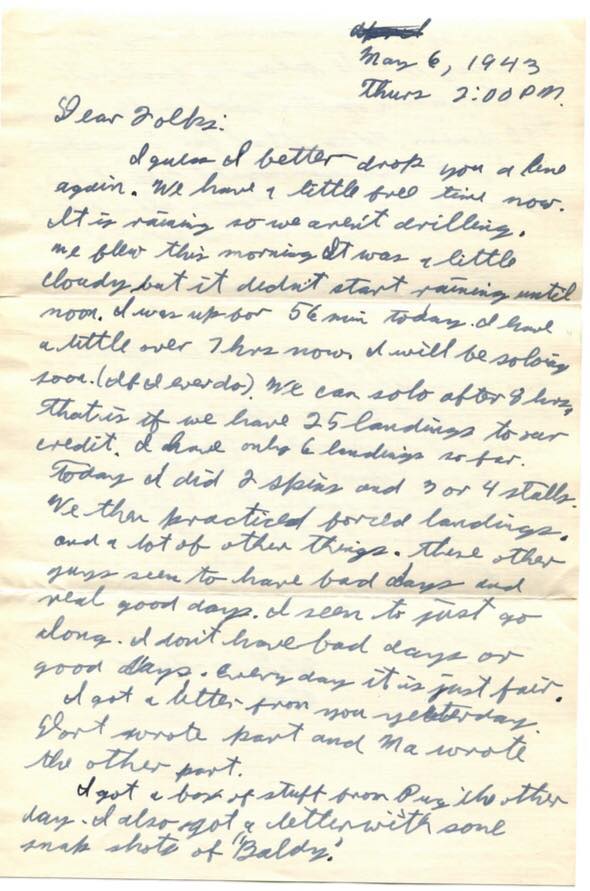 May 6, 1943
Thurs 2:00 P.M.
Dear Folks:
I guess I better drop you a line
again. We have a little free time now.
It is raining so we aren't drilling.
We flew this morning It was a little
cloudy but it didn't start raining until
noon. I was up for 56 min today. I have
a little over 7 hrs now. I will be soloing
soon. (If I ever do). We can solo after 8 hrs,
that is if we have 25 landings to our
credit. I have only 6 landings so far.
Today I did 2 spins and 3 or 4 stalls.
We then practiced forced landings.
and a lot of other things. These other
guys seem to have bad days and
real good days. I seem to just go
along. I don't have bad days or
good days. Every day it is just fair.
I got a letter from you yesterday.
wrote part and Ma wrote
the other part.
I got a box of stuff from the other
day. I also got a letter with some
snap shots of "Baldy."